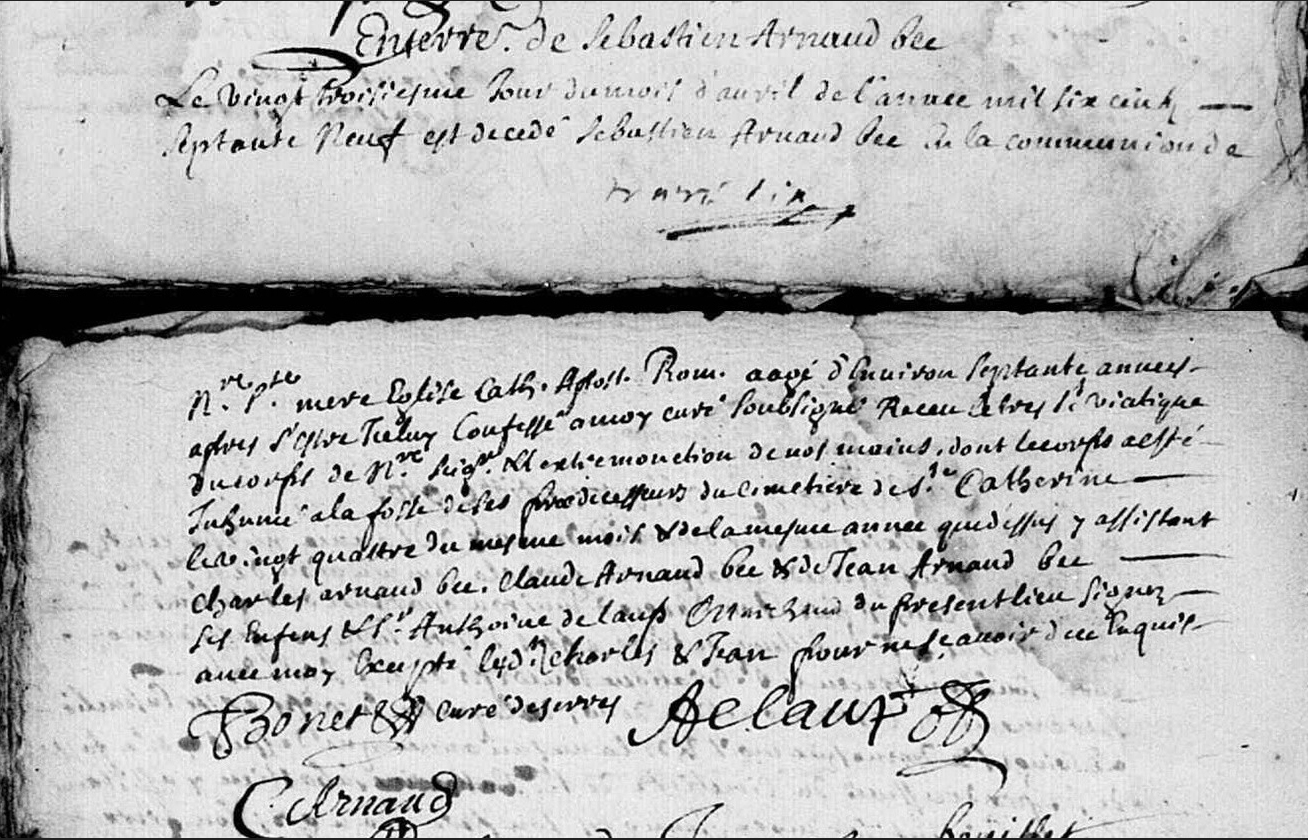 Enterre.t de Sebastien Arnaud bec
Le vingt troisiesme Jour du mois d'avril de l'annee mil six cent
septante Neuf est decedé Sebastien Arnaud bec en la communion de
N.re S.te mere Eglise Cath. Apost. Rom. aagé d'Environ septante annees
apres s'estre Confessé a moy curé soubsigné Receu le tres S.t viatique
du corps de N.re Seig.r & l'extremonction de nos mains, dont le corps a esté
Inhumé a la fosse de ses prædecesseurs du Cimetiere de S.te Catherine
le vingt quattre du mesme mois & de la mesme annee que dessus y assistant
Charles arnaud bec. Claude Arnaud bec & de Jean Arnaud bec
ses Enfens & S.r Anthoine de laup Marchand du present lieu signez
avec moy Excepté lesd.ts Charles & Jean pour ne sçavoir de ce Enquis
Bonet curé de serres Aelaup
C Arnaud